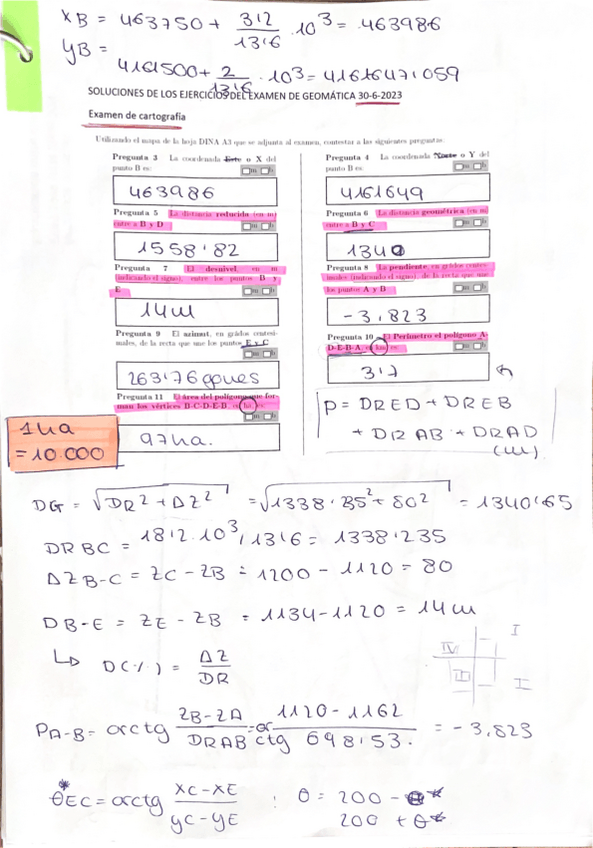 XB = 463750 + 312/13'6 · 10³ = 463986
YB =
4161500 + 2/13'6 · 10³ = 4161647'1059
SOLUCIONES DE LOS EJERCICIOS DEL EXAMEN DE GEOMÁTICA 30-6-2023
Examen de cartografía
Utilizando el mapa de la hoja DINA A3 que se adjunta al examen, contestar a las siguientes preguntas:
Pregunta 3 La coordenada Este o X del
punto B es:
463986
Pregunta 4 La coordenada Norte o Y del
punto B es:
4161649
Pregunta 5 La distancia reducida (en m)
entre B y D
1558'82
Pregunta 6 La distancia geométrica (en m)
entre B y C
1340
Pregunta 7 El desnivel, en m
(indicando el signo), entre los puntos B y
E
14m
Pregunta 8 La pendiente en grados centesi-
males (indicando el signo), de la recta que une
los puntos A y B
-3,823
Pregunta 9 El azimut, en grados centesi-
males, de la recta que une los puntos E y C
263'76 gones
Pregunta 10 El Perímetro el polígono A-
D-E-B-A, en km es:
3'7
Pregunta 11 El área del polígono que for-
man los vértices B-C-D-E-D, en ha, es:
97ha.
1ha
= 10.000
P = DRED + DREB
+ DRAB + DRAD
(m)
DG = √DR² + ΔZ² = √1338'235² + 80² = 1340'65
DRBC = 18'2 · 10³/13'6 = 1338'235
ΔZ B-C = ZC - ZB = 1200 - 1120 = 80
DB-E = ZE - ZB = 1134 - 1120 = 14m
↳ D(%) = ΔZ/DR
I
IV
III
I
PA-B = arctg ZB-ZA/DRAB = arctg 1120-1162/698'53. = -3,823
θ*EC = arctg XC-XE/YC-YE : θ = 200 - θ*
200 + θ*